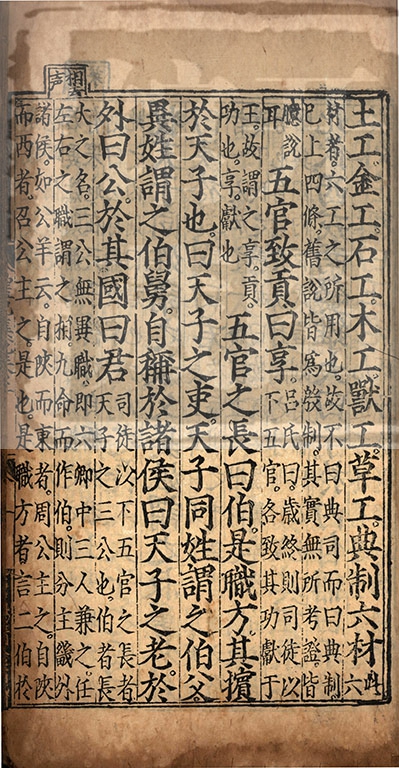 土工。金工。石工。木工。獸工。草工。典制六材此六
材者。六工之所用也。故不曰典司而曰典制。
已上四條。舊說皆爲殷制。其實無所考證。皆
臆說
耳
五官致貢曰享。
呂氏曰。歲終則司徒以
下五官。各致其功獻于
王。故謂之享。貢。
功也。享。獻也
五官之長曰伯。是職方。其擯
於天子也。曰天子之吏。天子同姓謂之伯父。
異姓謂之伯舅。自稱於諸侯曰天子之老。於
外曰公。於其國曰君
司徒以下五官之長者
天子之三公也。伯者長
大之名。三公無異職。即六卿中三人兼之。任
左右之職謂之相。九命而作伯。則分主畿外
諸侯。如公羊云。自陝而東者。周公主之。自陝
而西者。召公主之。是也。是職方者言二伯於